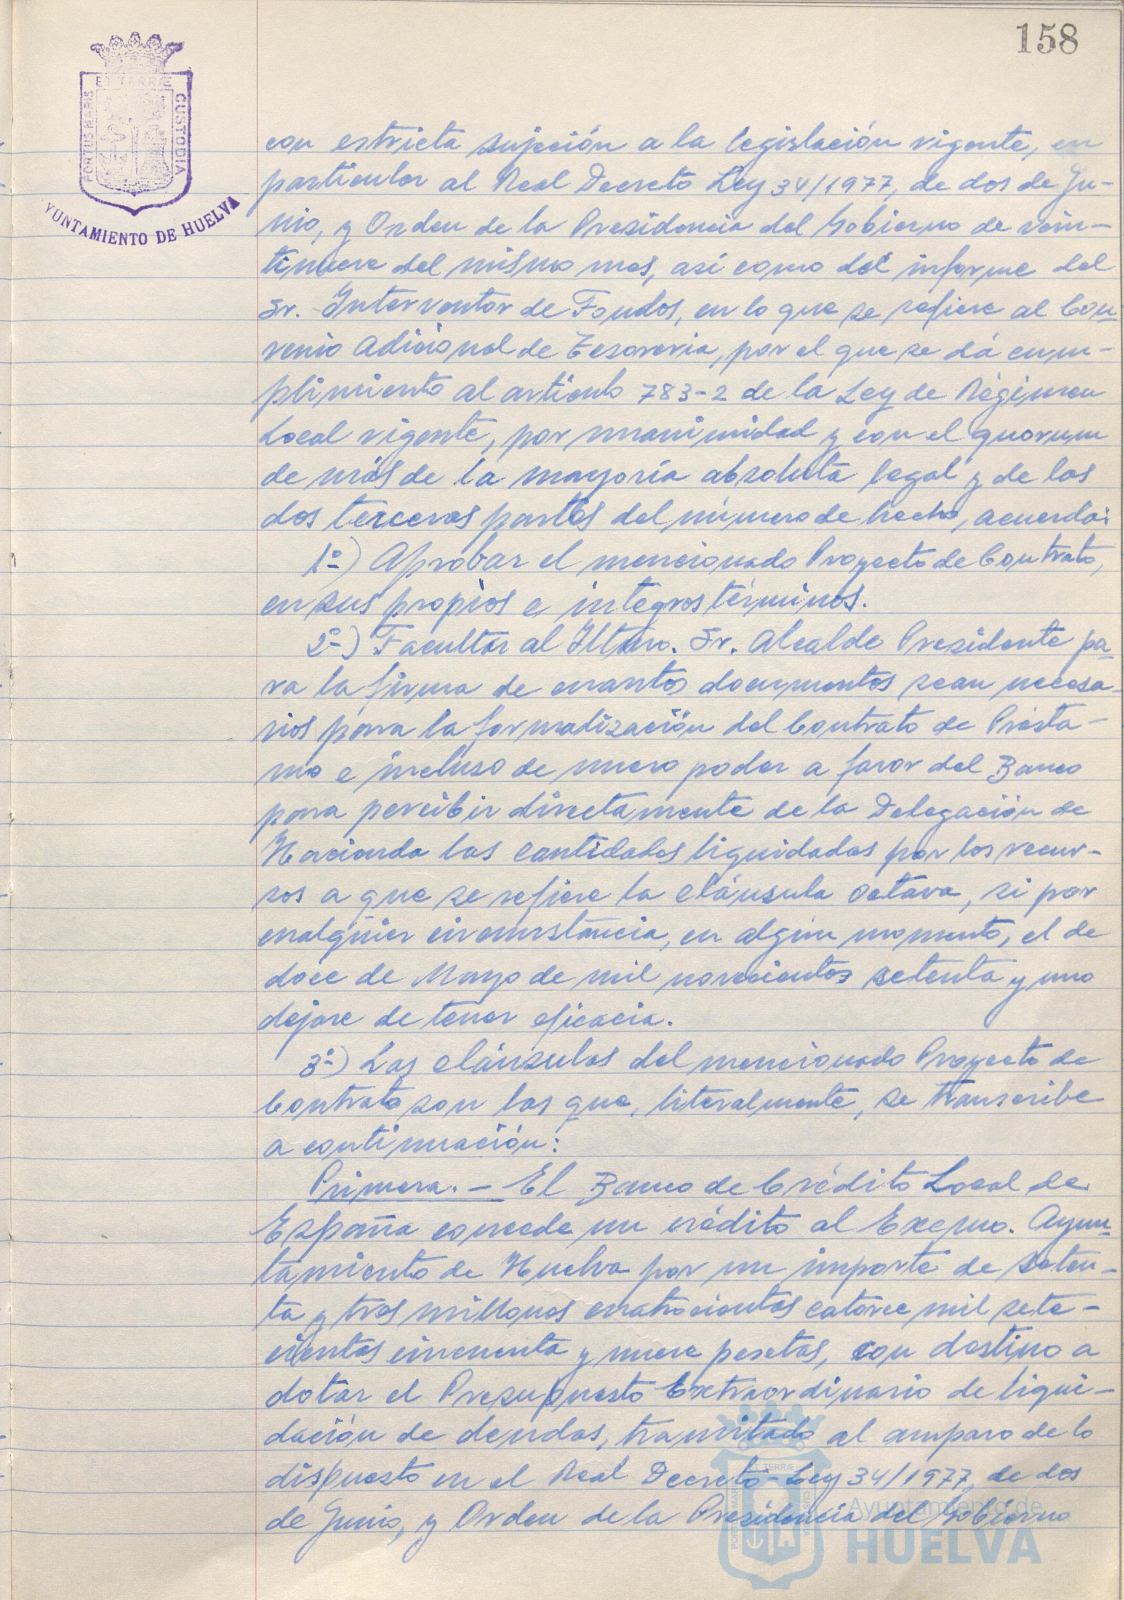 158
PORTUS MARIS
ET TERRÆ
CUSTODIA
YUNTAMIENTO DE HUELVA
con estricta sujeción a la legislación vigente, en
particular al Real Decreto Ley 34/1977, de dos de Ju-
nio, y Orden de la Presidencia del Gobierno de vein-
tinueve del mismo mes, así como del informe del
Sr. Interventor de Fondos, en lo que se refiere al Con-
venio adicional de Tesorería, por el que se dá cum-
plimiento al artículo 783-2 de la Ley de Régimen
Local vigente, por unanimidad y con el quorum
de más de la mayoría absoluta legal y de las
dos terceras partes del número de hecho, acuerda:
1º) Aprobar el mencionado Proyecto de Contrato,
en sus propios e íntegros términos.
2º) Facultar al Iltmo. Sr. Alcalde Presidente pa-
ra la firma de cuantos documentos sean necesa-
rios para la formalización del Contrato de Présta-
mo e incluso de nuevo poder a favor del Banco
para percibir directamente de la Delegación de
Hacienda las cantidades liquidadas por los recur-
sos a que se refiere la cláusula octava, si por
cualquier circunstancia, en algún momento, el de
doce de Mayo de mil novecientos setenta y uno
dejare de tener eficacia.
3º) Las cláusulas del mencionado Proyecto de
Contrato son las que, literalmente, se transcribe
a continuación:
Primera. - El Banco de Crédito Local de
España concede un crédito al Excmo. Ayun-
tamiento de Huelva por un importe de seten-
ta y tres millones cuatrocientas catorce mil sete-
cientas cincuenta y nueve pesetas, con destino a
dotar el Presupuesto Extraordinario de liqui-
dación de deudas, tramitado al amparo de lo
dispuesto en el Real Decreto-Ley 34/1977, de dos
de Junio, y Orden de la Presidencia del Gobierno
Ayuntamiento de
HUELVA